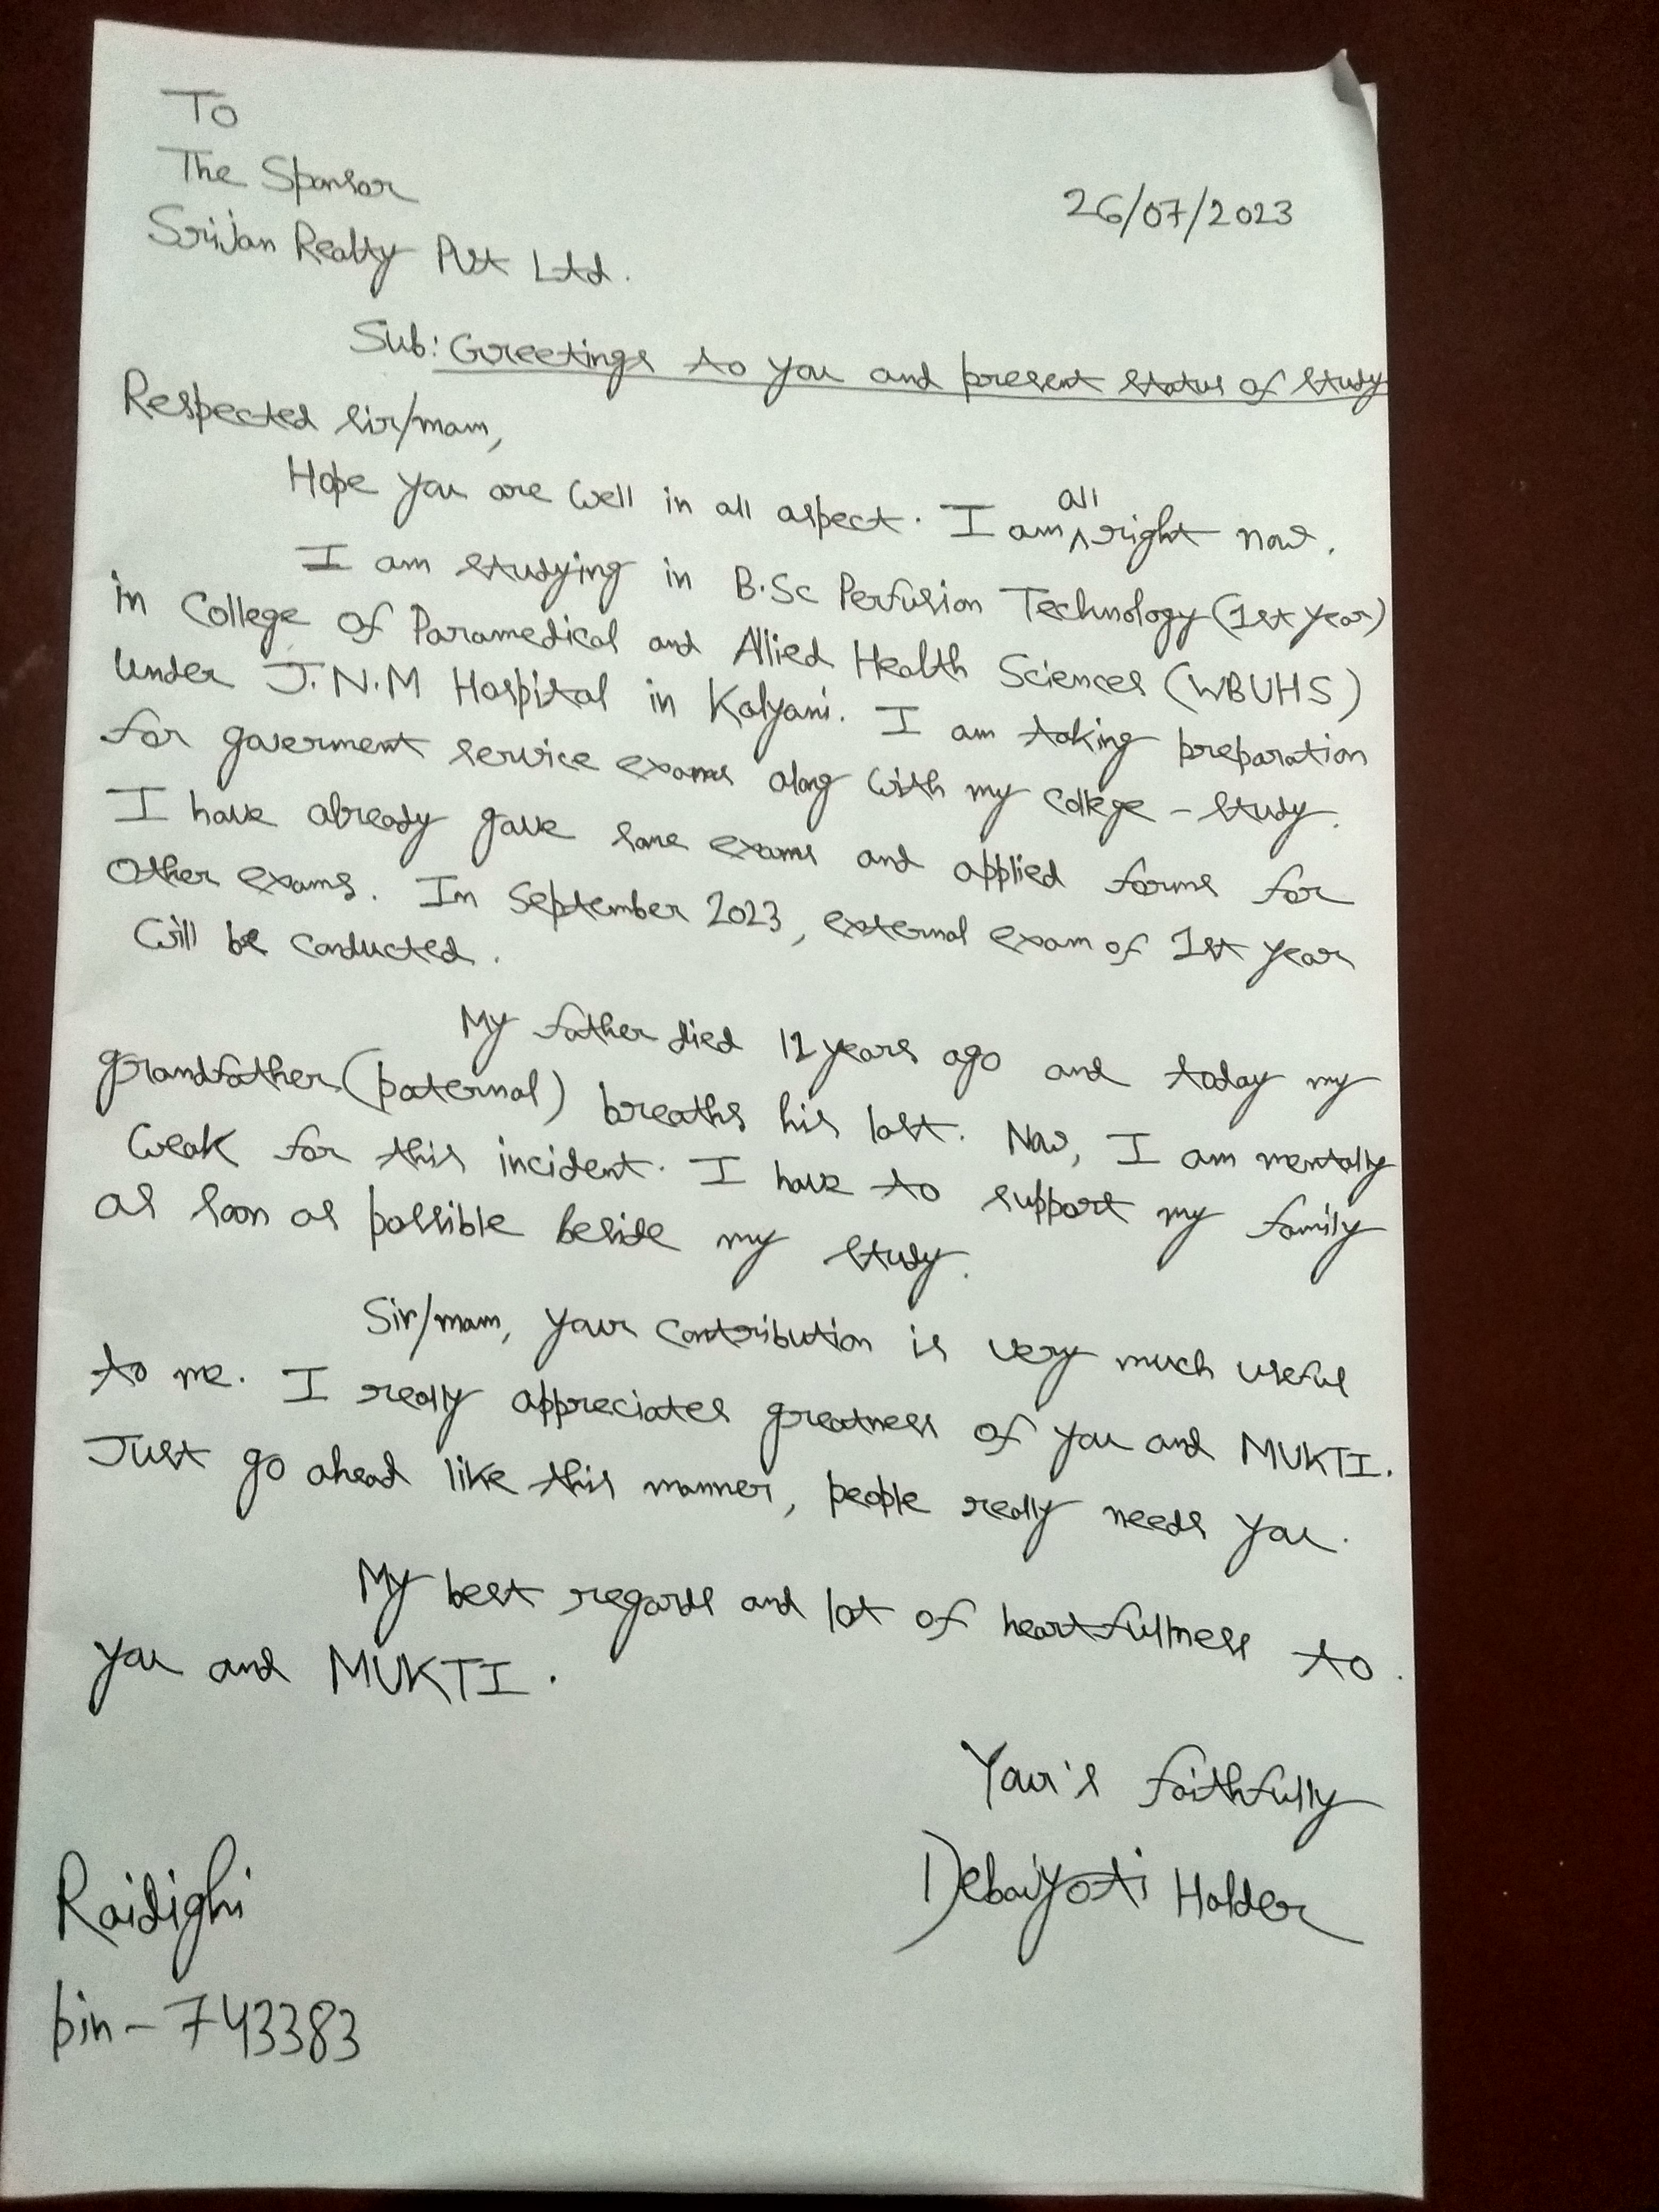 To
The Sponsor
26/07/2023
Srijan Realty Pvt Ltd.
Sub: Greetings to you and present status of study
Respected sir/mam,
Hope you are well in all aspect. I am all right now.
I am studying in B.Sc Perfusion Technology (1st year)
in College of Paramedical and Allied Health Sciences (WBUHS)
under J.N.M Hospital in Kalyani. I am taking preparation
for goverment service exams along with my college-study.
I have already gave some exams and applied forms for
other exams. In September 2023, external exam of 1st year
will be conducted.
My father died 12 years ago and today my
grandfather (paternal) breaths his last. Now, I am mentally
weak for this incident. I have to support my family
as soon as possible beside my study.
Sir/mam, your contribution is very much useful
to me. I really appreciates greatness of you and MUKTI.
Just go ahead like this manner, people really needs you.
My best regards and lot of heartfullness to
you and MUKTI.
Your's faithfully
Debajyoti Halder
Raidighi
pin-743383